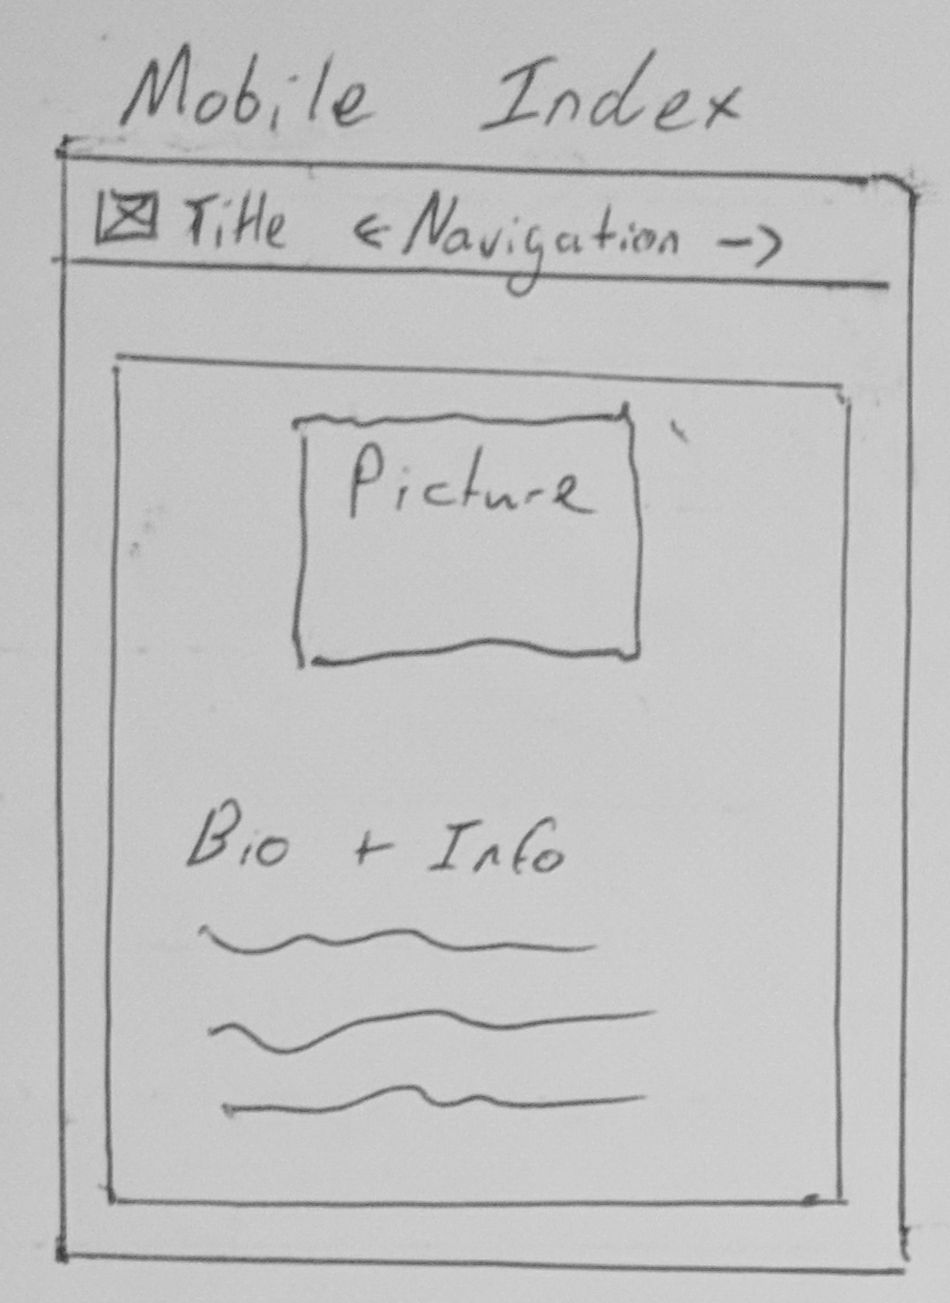 Mobile Index
Title ← Navigation →
Picture
Bio + Info